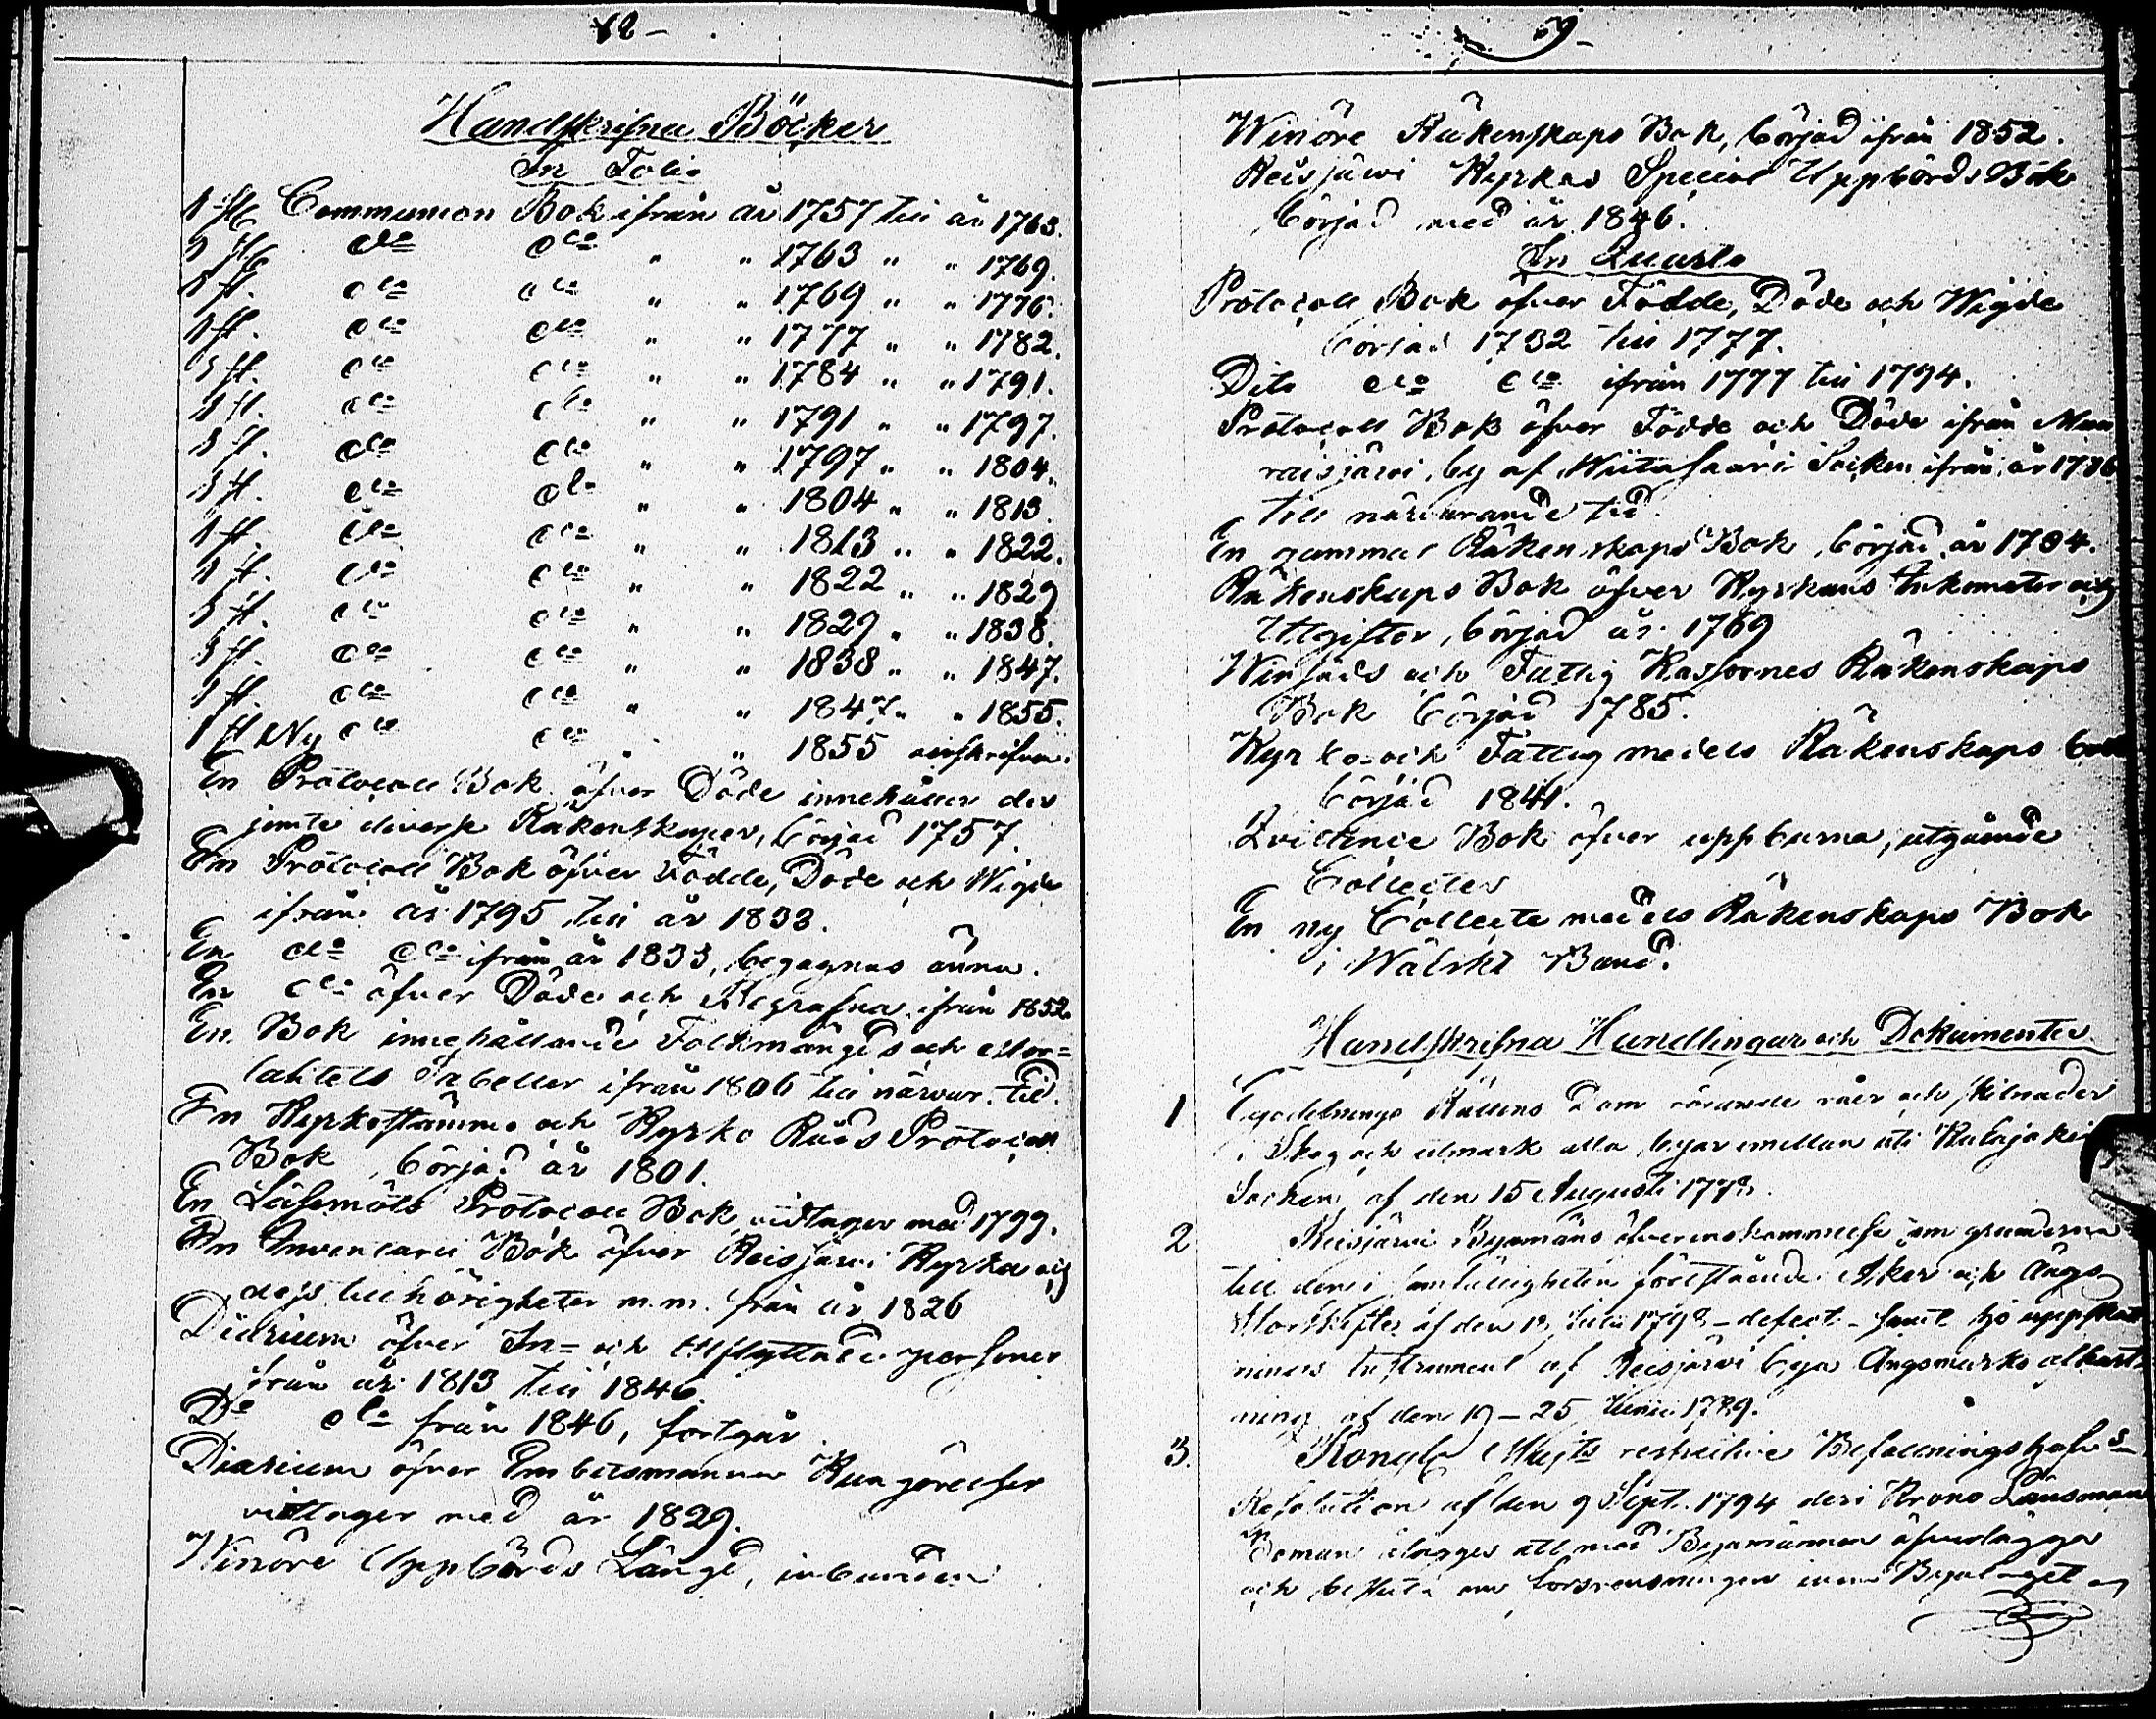 Handskrifna Böcker
In Folio
1 st. Communion Bok ifrån år 1757 till år 1763.
1 st. do do " " 1763 " " 1769.
1 st. do do " " 1769 " " 1776.
1 st. do do " " 1777 " " 1782.
1 st. do do " " 1784 " " 1791.
1 st. do do " " 1791 " " 1797.
1 st. do do " " 1797 " " 1804.
1 st. do do " " 1804 " " 1813.
1 st. do do " " 1813 " " 1822.
1 st. do do " " 1822 " " 1829
1 st. do do " " 1829 " " 1838.
1 st. do do " " 1838 " " 1847.
1 st. do do " " 1847 " " 1855.
1 st Ny do do " " 1855 oinskrifven.
En Protocoll Bok öfver Döde innehåller der
jemte diverse Räkenskaper, börjad 1757.
En Protocoll Bok öfver Födde, Döde och Wigde
ifrån år 1795 till år 1833.
En do do ifrån år 1833, begagnas ännu.
En do öfver Döde och Begrafna ifrån 1852.
En Bok innehållande Folkmängds och Mor=
talitets Tabeller ifrån 1806 till närvar. tid.
En Kyrkostämmo och Kyrko Råds Protocoll
Bok, börjad år 1801.
En Läsemöts Protocoll Bok vidtager med 1799.
En Inventarii Bok öfver Reisjärvi Kyrka och
dess tillhörigheter m.m. från år 1826
Diarium öfver In= och Utflyttade personer
från år 1813 till 1846.
Do do från 1846, fortgår.
Diarium öfver Embetsmanna Kungörelser
vidtager med år 1829.
Winöre Uppbörds Längd, inbunden
Winöre Räkenskaps Bok, börjad ifrån 1852.
Reisjärvi Kyrkas Special Uppbörds Bok
börjad med år 1846.
In Quarto
Protocoll Bok öfver Födde, Döde och Wigde
börjad 1732 till 1777.
Dito do do ifrån 1777 till 1794.
Protocoll Bok öfver Födde och Döde ifrån Muu
raisjärvi by af Wiitasaari Socken ifrån år 1786
till närvarande tid.
En gammal Räkenskaps Bok, börjad år 1734.
Räkenskaps Bok öfver Kyrkans Inkomster och
Utgifter, börjad år 1769
Winsäds och Fattig Kassornes Räkenskaps
Bok börjad 1785.
Kyrko- och Fattig medels Räkenskaps bok
börjad 1841.
Qvittence Bok öfver uppburna, utgående
Collecter
En ny Collecte medels Räkenskaps Bok
i Wälskt Band.
Handskrifna Handlingar och Dokumenter
1 Egodelnings Rättens Dom rörande råer och skilnader
i Skog och utmark alla byar emellan uti Kalajoki
Socken af den 15 Augusti 1778.
2 Reisjärvi Byamäns öfverenskommelse om grunderna
till den i samfälligheten förestående Åker och Ängs
Storskiftes af den 13 Julii 1798 - defect - samt
Instrument af Reisjärvi bya Ängsmarks
af den 19 - 25 Junii 1789.
3. Kongl Majts Befallningshafv s
Resolution af den 9 Sept. 1794 deri Krono Länsman
ålägges att med Byamännen öfverlägga
och besluta om inom Byalaget